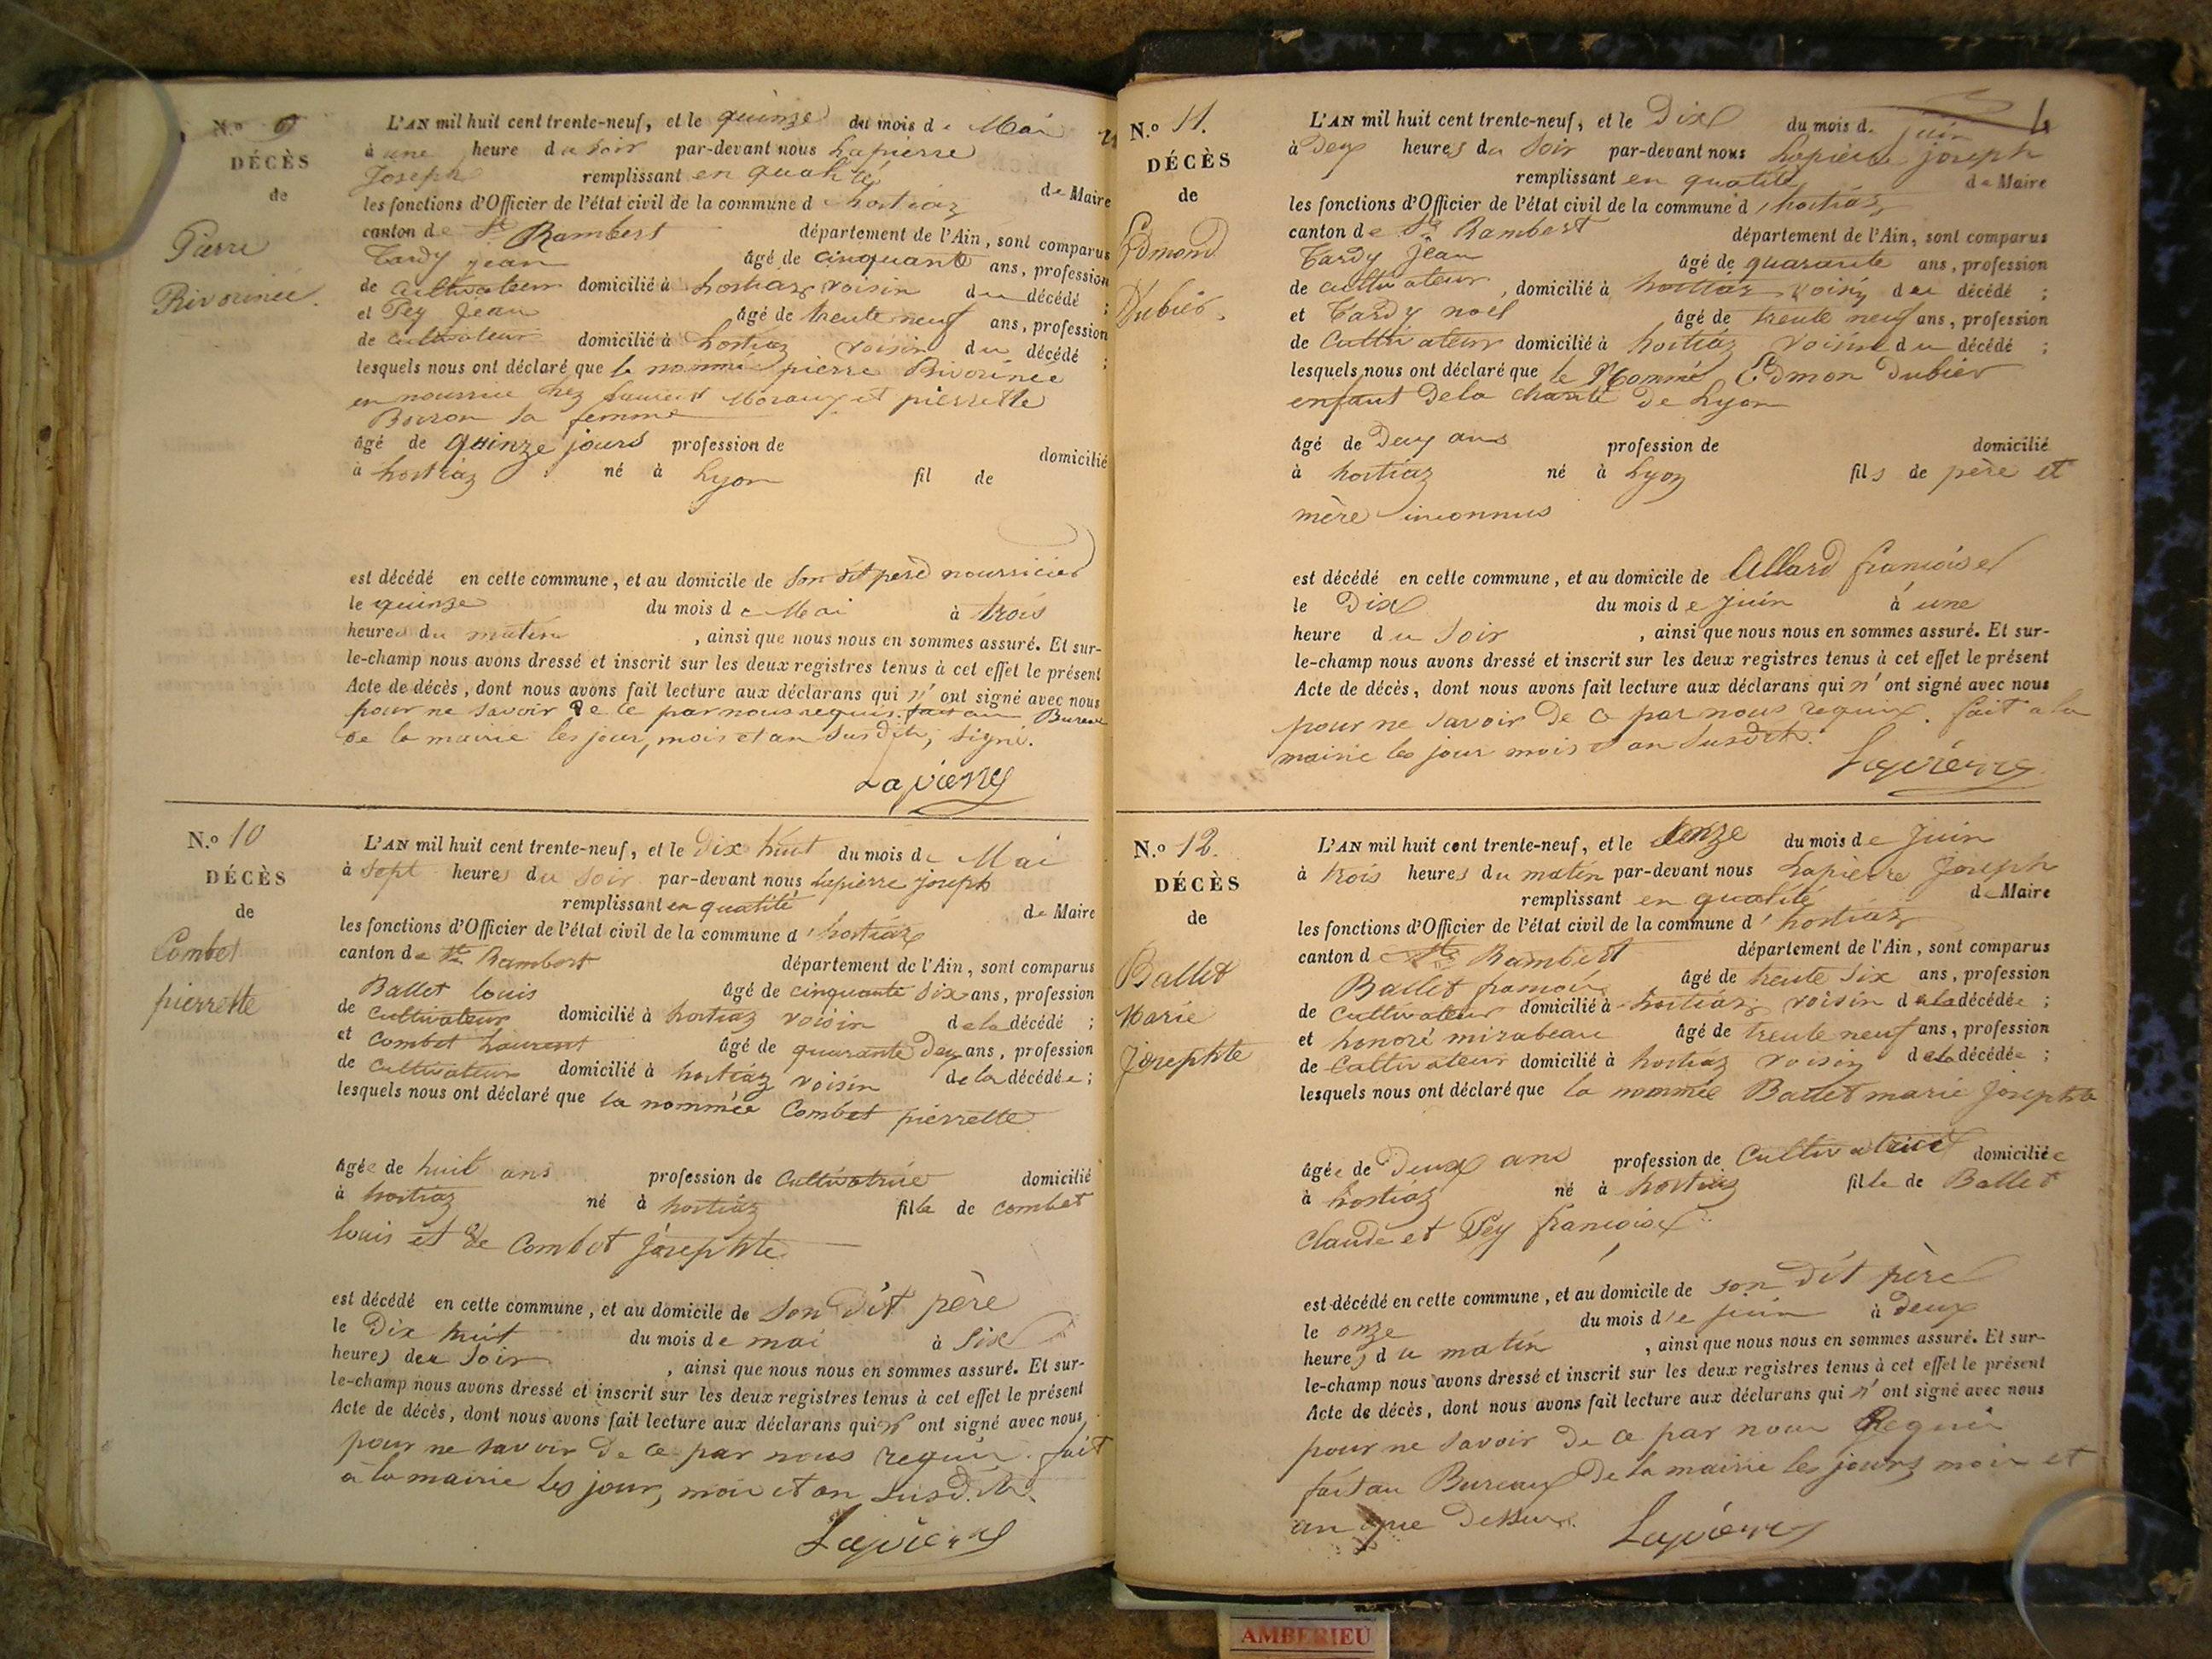 N.º 9
DÉCÈS
de
Pierre
Rivoirinée.
L'AN mil huit cent trente-neuf, et le quinze du mois de Mai
à une heure du soir par-devant nous Lapierre
Joseph remplissant en qualité de Maire
les fonctions d'Officier de l'état civil de la commune d'hortiaz
canton de St Rambert département de l'Ain, sont comparus
Tardy jean âgé de cinquante ans, profession
de cultivateur domicilié à hortiaz voisin du décédé ;
et Pey Jean âgé de trente neuf ans, profession
de cultivateur domicilié à hortiaz voisin du décédé ;
lesquels nous ont déclaré que le nommé pierre Rivoirinée
en nourrice chez Laurent Moraux et pierrette
Borron sa femme
âgé de quinze jours profession de domicilié
à hortiaz né à Lyon fil de
est décédé en cette commune, et au domicile de son dit père nourricier
le quinze du mois de Mai à trois
heures du matin , ainsi que nous nous en sommes assuré. Et sur-
le-champ nous avons dressé et inscrit sur les deux registres tenus à cet effet le présent
Acte de décès, dont nous avons fait lecture aux déclarans qui n'ont signé avec nous
pour ne savoir de ce par nous requis. fait au Bureau
de la mairie les jour, mois et an susdits, signé.
Lapierre
N.º 10
DÉCÈS
de
Combet
pierrette
L'AN mil huit cent trente-neuf, et le dix huit du mois de Mai
à sept heures du soir par-devant nous Lapierre joseph
remplissant en qualité de Maire
les fonctions d'Officier de l'état civil de la commune d'hortiaz
canton de St Rambert département de l'Ain, sont comparus
Ballet louis âgé de cinquante six ans, profession
de cultivateur domicilié à hortiaz voisin de la décédé ;
et Combet Laurent âgé de quarante deux ans, profession
de cultivateur domicilié à hortiaz voisin de la décédée ;
lesquels nous ont déclaré que la nommée Combet pierrette
âgée de huit ans profession de cultivatrice domicilié
à hortiaz né à hortiaz fille de combet
louis et de Combet josephte
est décédé en cette commune, et au domicile de son dit père
le dix huit du mois de mai à six
heures du soir , ainsi que nous nous en sommes assuré. Et sur-
le-champ nous avons dressé et inscrit sur les deux registres tenus à cet effet le présent
Acte de décès, dont nous avons fait lecture aux déclarans qui n'ont signé avec nous
pour ne savoir de ce par nous requis. fait
à la mairie les jour, mois et an susdits.
Lapierre
N.º 11.
DÉCÈS
de
Edmond
Dubier.
4
L'AN mil huit cent trente-neuf, et le Dix du mois de juin
à deux heures du soir par-devant nous Lapierre joseph
remplissant en qualité de Maire
les fonctions d'Officier de l'état civil de la commune d'hortiaz
canton de St Rambert département de l'Ain, sont comparus
Tardy Jean âgé de quarante ans, profession
de cultivateur, domicilié à hortiaz voisin du décédé ;
et Tardy noel âgé de trente neuf ans, profession
de cultivateur domicilié à hortiaz voisin du décédé ;
lesquels nous ont déclaré que le Nommé Edmon Dubier
enfant de la charité de Lyon
âgé de deux ans profession de domicilié
à hortiaz né à Lyon fils de père et
mère inconnus
est décédé en cette commune, et au domicile de Allard françoise
le Dix du mois de juin à une
heure du soir , ainsi que nous nous en sommes assuré. Et sur-
le-champ nous avons dressé et inscrit sur les deux registres tenus à cet effet le présent
Acte de décès, dont nous avons fait lecture aux déclarans qui n'ont signé avec nous
pour ne savoir de ce par nous requis. fait a la
mairie les jour mois et an susdits.
Lapierre
N.º 12.
DÉCÈS
de
Ballet
Marie
josephte
L'AN mil huit cent trente-neuf, et le onze du mois de Juin
à trois heures du matin par-devant nous Lapierre Joseph
remplissant en qualité de Maire
les fonctions d'Officier de l'état civil de la commune d'hortiaz
canton de St Rambert département de l'Ain, sont comparus
Ballet françois âgé de trente six ans, profession
de cultivateur domicilié à hortiaz voisin de la décédée ;
et honoré mirabeau âgé de trente neuf ans, profession
de cultivateur domicilié à hortiaz voisin de la décédée ;
lesquels nous ont déclaré que la nommée Ballet marie josephte
âgée de Deux ans profession de cultivatrice domiciliée
à hortiaz né à hortiaz fille de Ballet
claude et Pey françoise
est décédé en cette commune, et au domicile de son dit père
le onze du mois de juin à deux
heures du matin , ainsi que nous nous en sommes assuré. Et sur-
le-champ nous avons dressé et inscrit sur les deux registres tenus à cet effet le présent
Acte de décès, dont nous avons fait lecture aux déclarans qui n'ont signé avec nous
pour ne savoir de ce par nous Requis
fait au Bureau de la mairie les jours mois et
an que dessus.
Lapierre
AMBERIEU